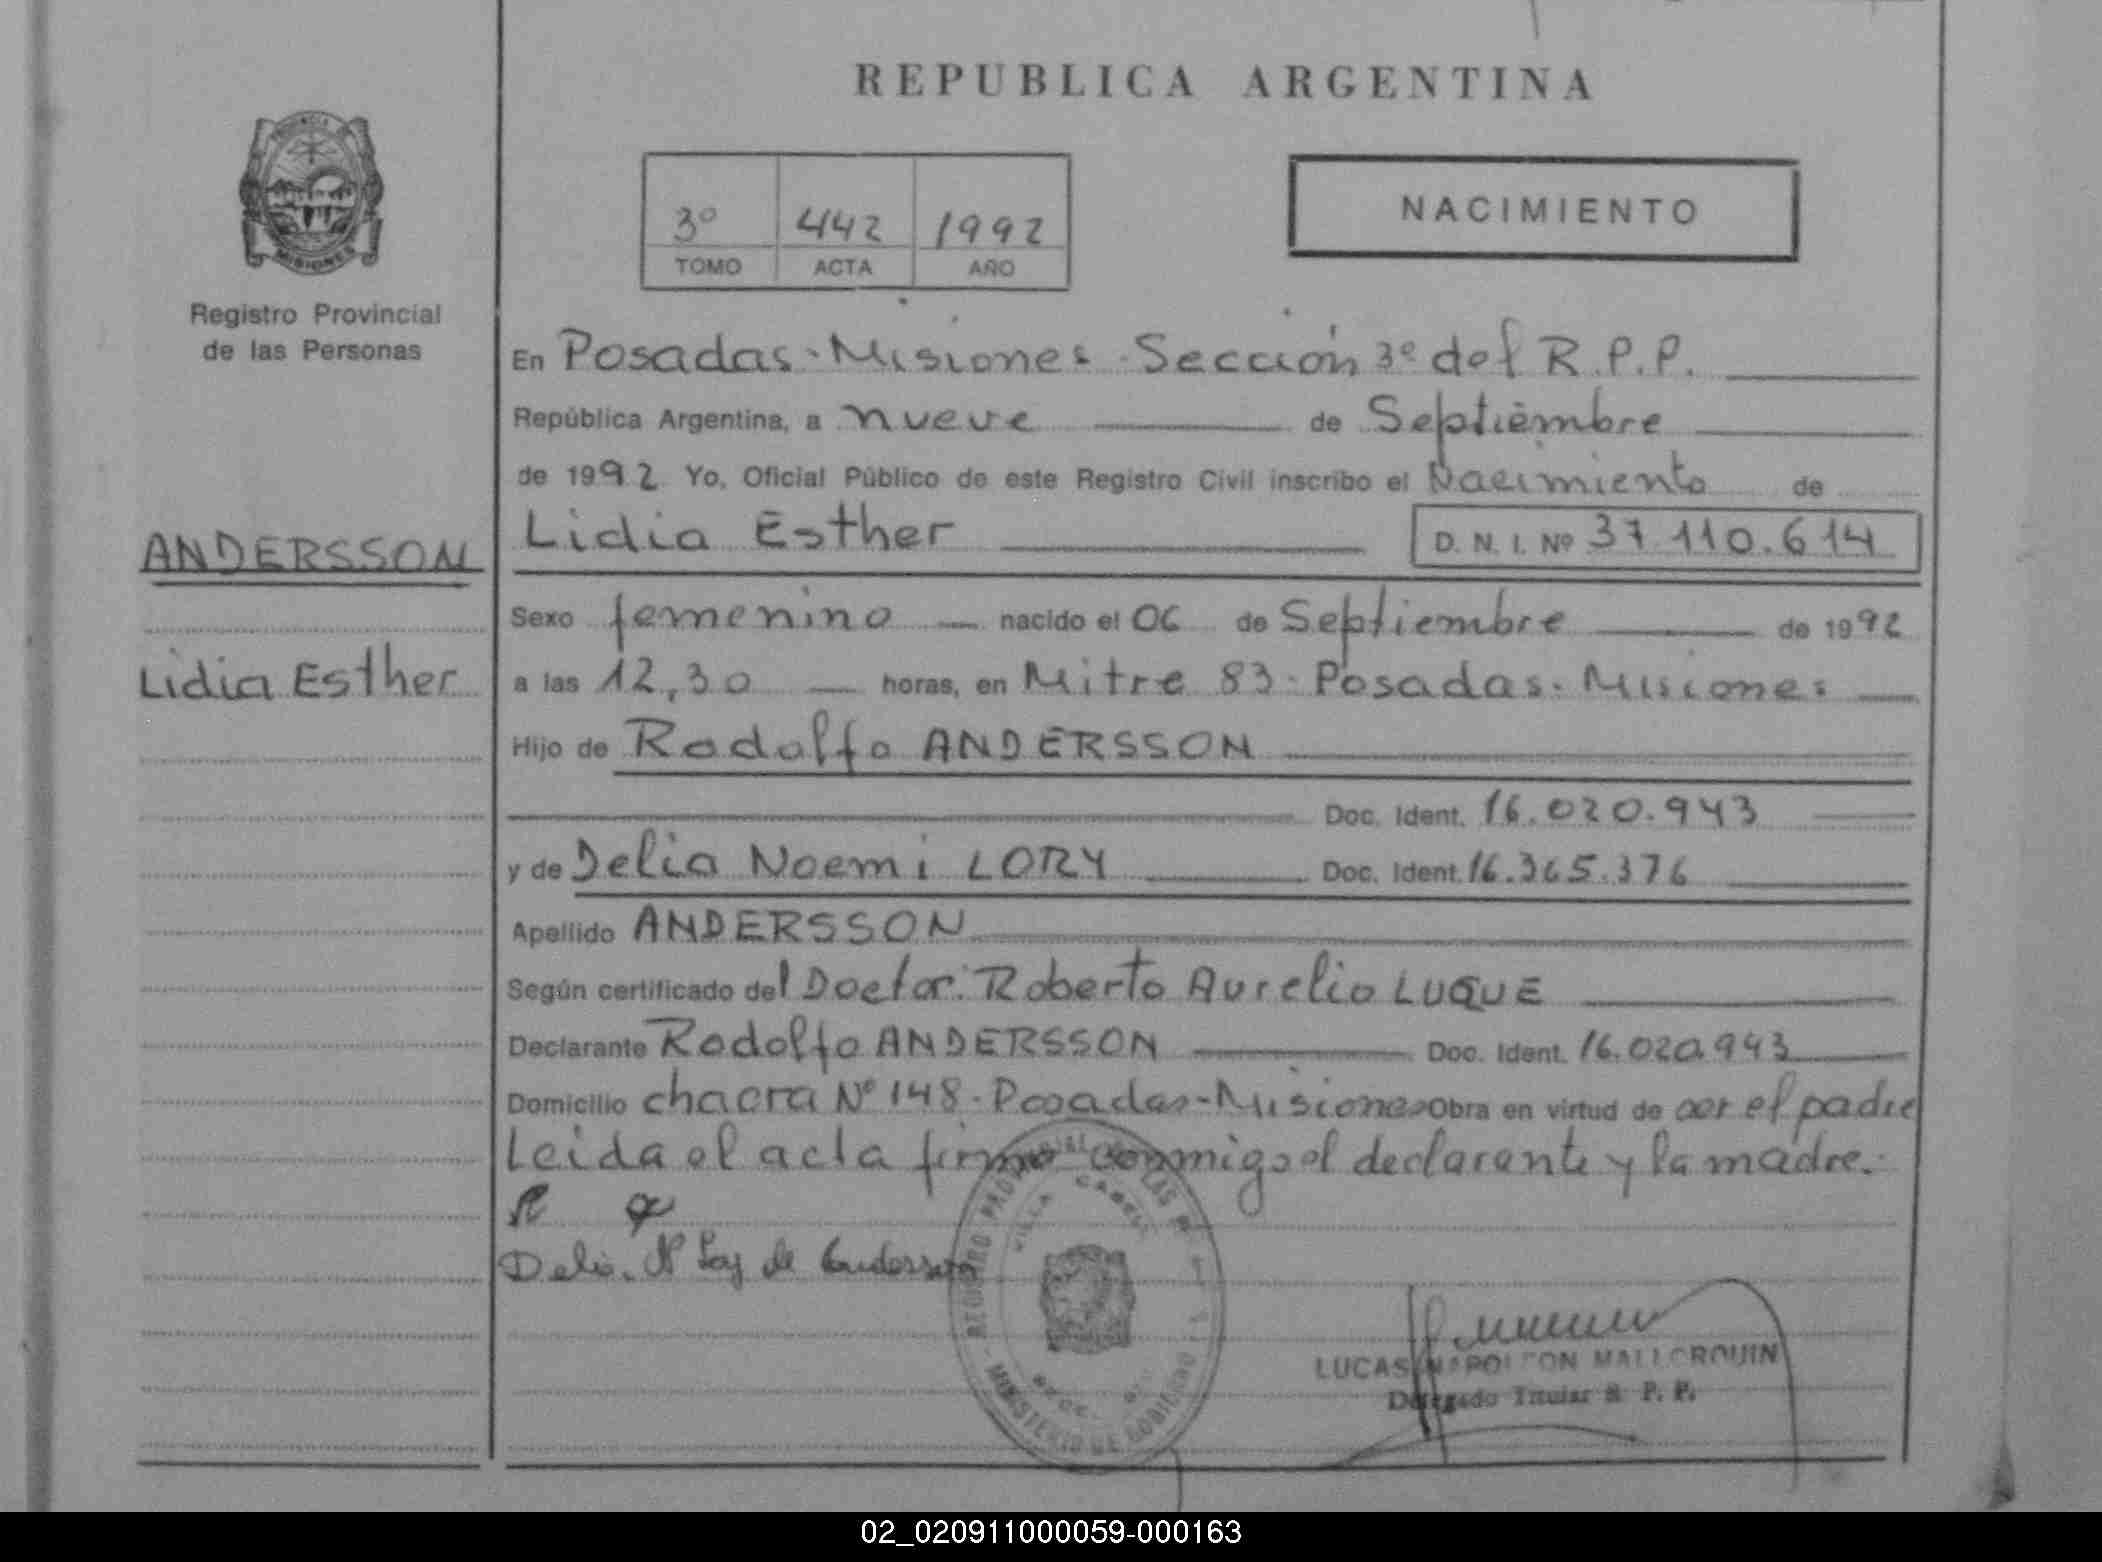 REPUBLICA ARGENTINA
PROVINCIA DE
MISIONES
Registro Provincial
de las Personas
3º 442 1992
TOMO ACTA AÑO
NACIMIENTO
En Posadas - Misiones - Sección 3º del R.P.P.
República Argentina, a nueve de Septiembre
de 1992 Yo, Oficial Público de este Registro Civil inscribo el Nacimiento de
ANDERSSON
Lidia Esther D. N. I. Nº 37.110.614
Sexo femenino nacido el 06 de Septiembre de 1992
Lidia Esther
a las 12,30 horas, en Mitre 83 - Posadas - Misiones
Hijo de Rodolfo ANDERSSON
Doc. Ident. 16.020.943
y de Delia Noemi LORY Doc. Ident. 16.365.376
Apellido ANDERSSON
Según certificado del Doctor: Roberto Aurelio LUQUE
Declarante Rodolfo ANDERSSON Doc. Ident. 16.020.943
Domicilio chacra Nº 148 - Posadas - Misiones Obra en virtud de ser el padre
Leida el acta firma conmigo el declarante y la madre.
Delia N de Andersson
REGISTRO PROVINCIAL DE LAS
VILLA CABELLO
MINISTERIO DE GOBIERNO
LUCAS NAPOLEON MALLORQUIN
Delegado Titular R. P. P.
02_020911000059-000163